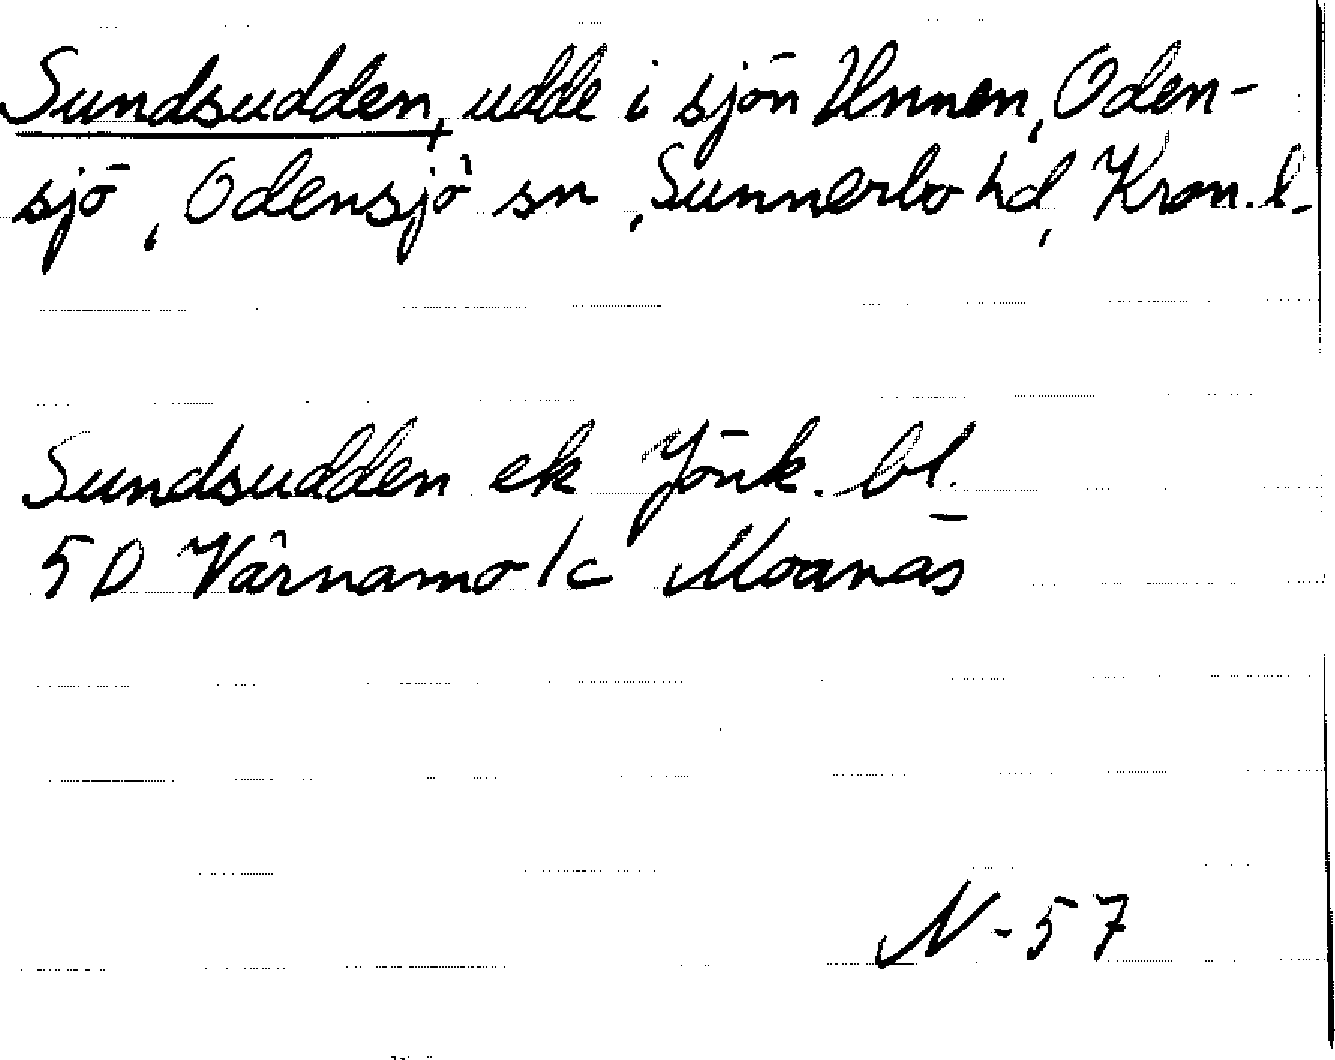 Sundsudden, udde i sjön Unnen, Oden-
sjö, Odensjö sn, Sunnerbo hd, Kron. l.
Sundsudden ek Jönk. bl.
5D Värnamo/c Moanäs
N-57